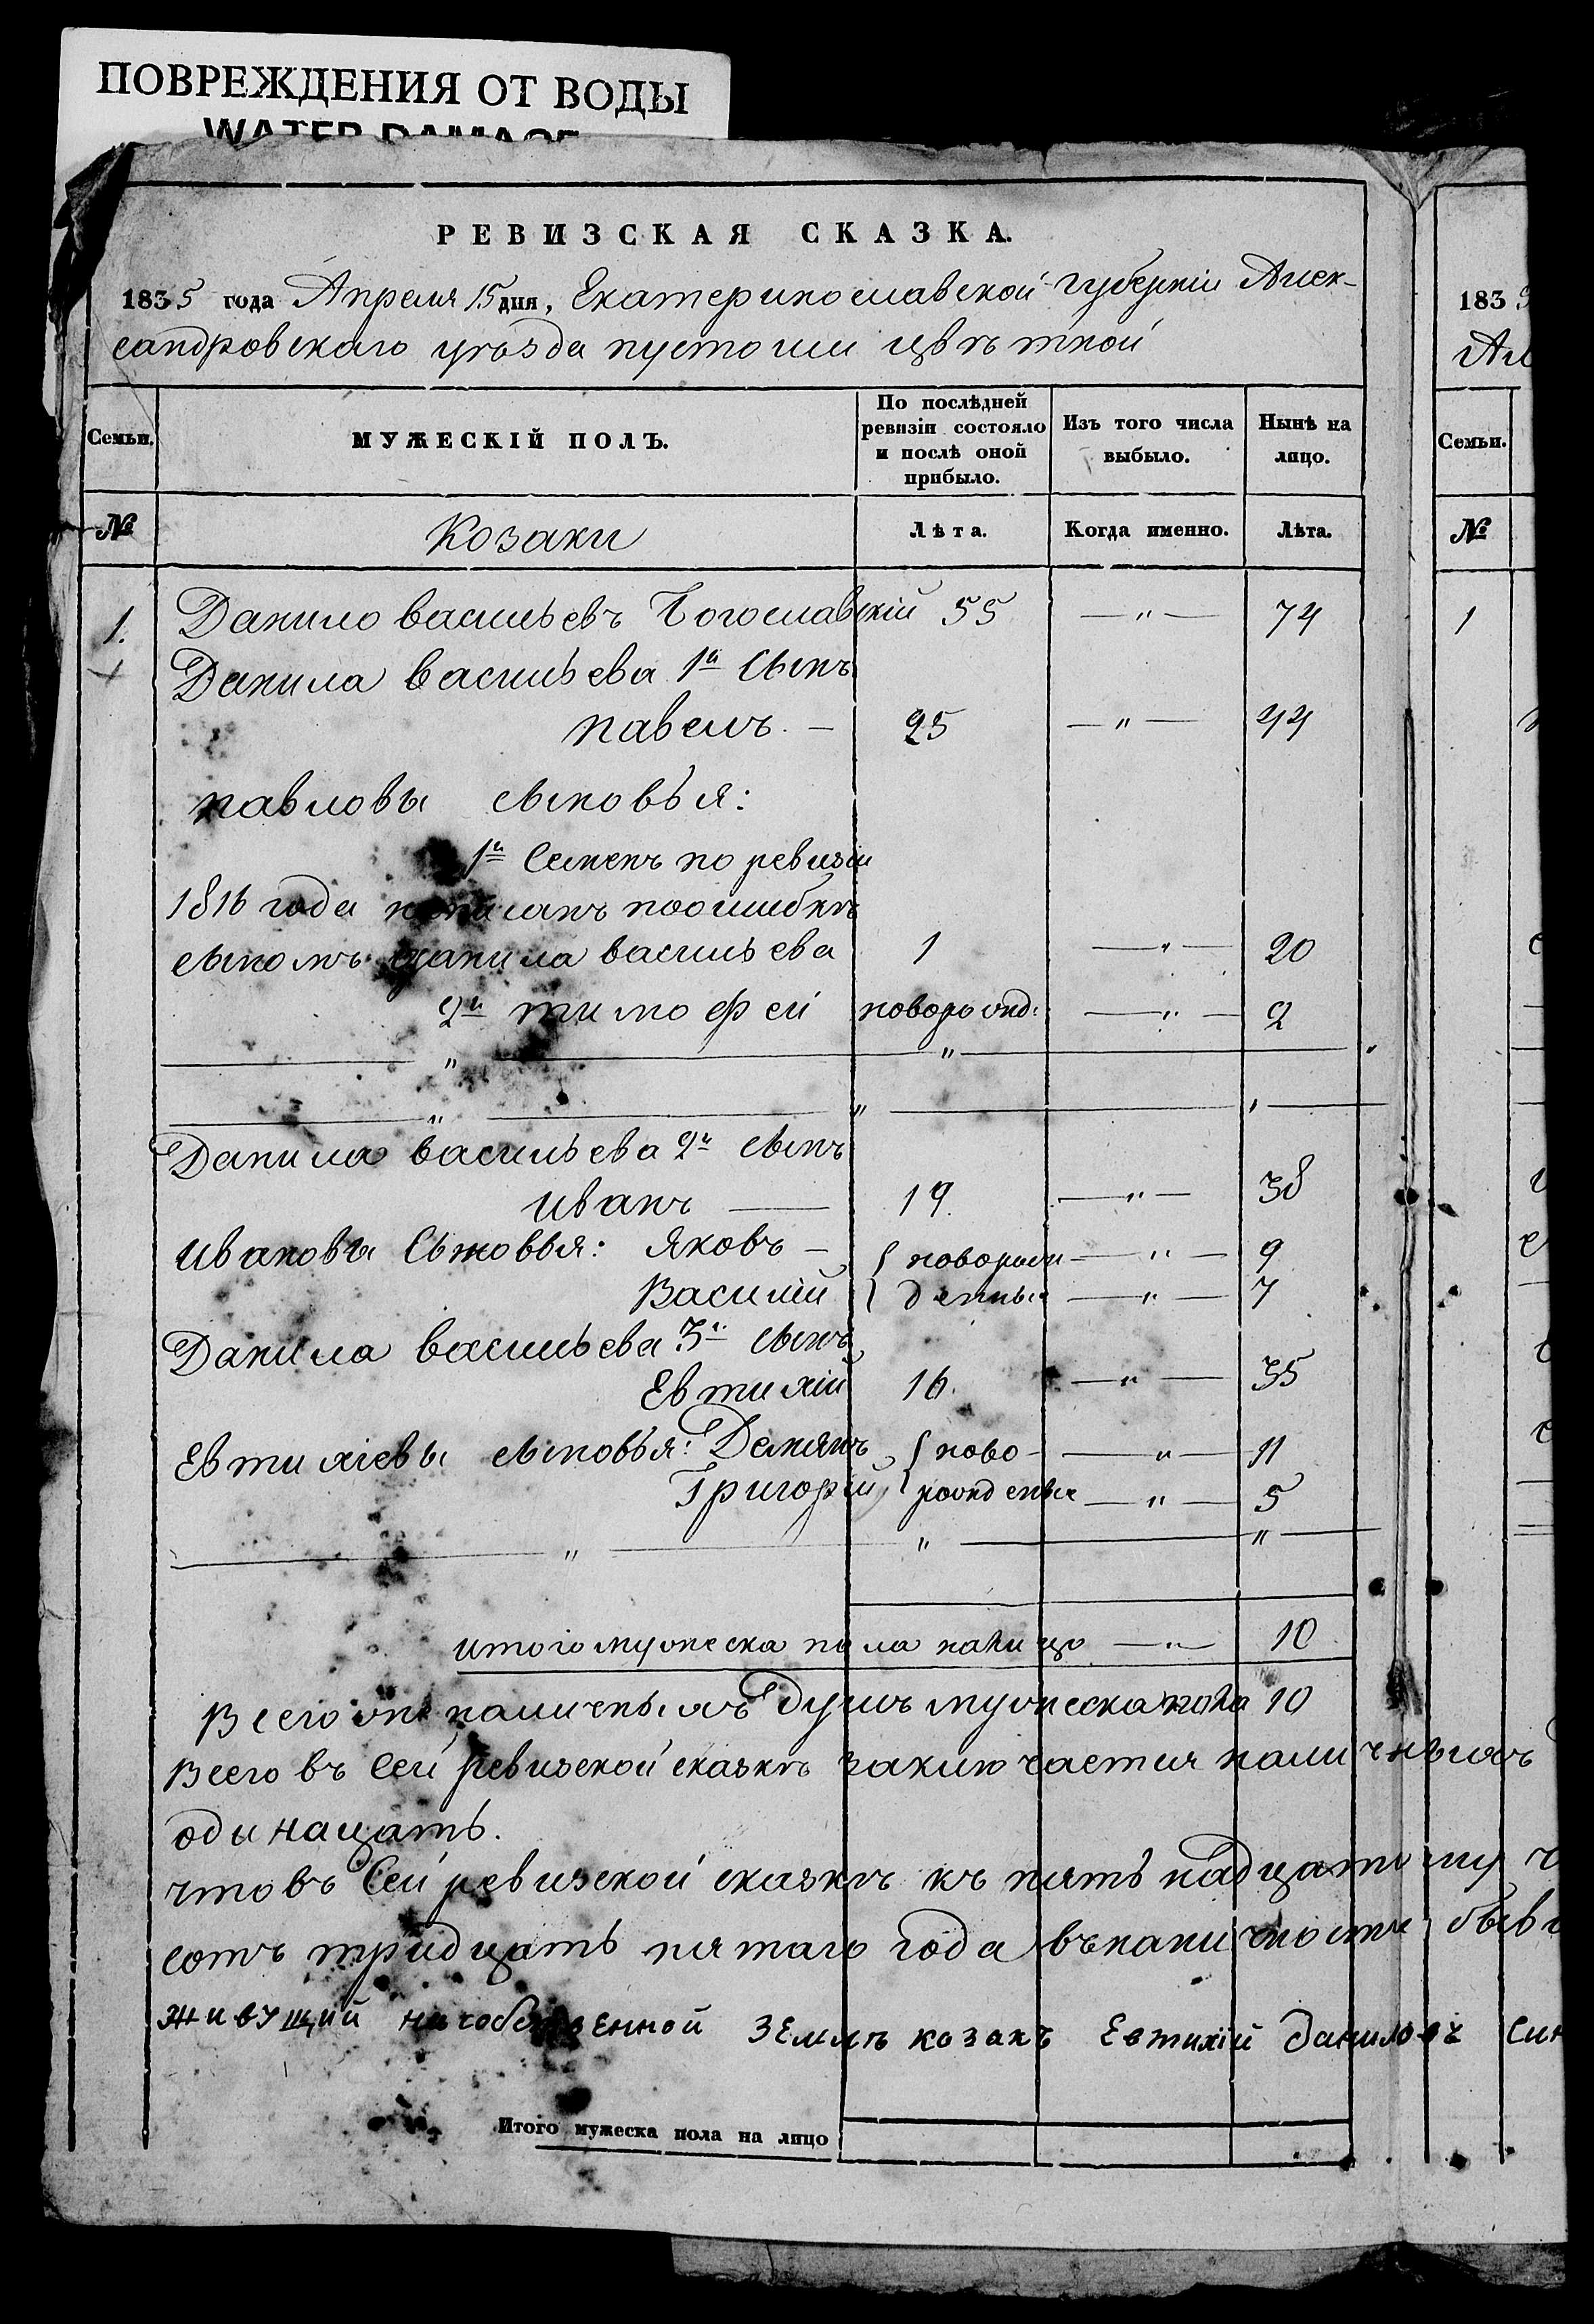 ПОВРЕЖДЕНИЯ ОТ ВОДЫ
WATER DAMAGE
РЕВИЗСКАЯ СКАЗКА.
1835 года Апреля 15 дня, Екатеринославской губерніи Алек-
сандровскаго уѣзда пустоши цвѣтной
183
Ал
Семьи.
МУЖЕСКІЙ ПОЛЪ.
По послѣдней ревизіи состояло и послѣ оной прибыло.
Изъ того числа выбыло.
Нынѣ на лицо.
Семьи.
№
Козаки
Лѣта.
Когда именно.
Лѣта.
№
1. Данило васильевъ Богославскій 55 —"— 74
1
Данила васильева 1й сынъ
павелъ. — 25 —"— 44
павловы сыновья:
1й Семенъ по ревизіи
1816 года написанъ поошибкѣ
сыномъ данила васильева 1 —"— 20
2й тимофей новорожд: —"— 2
Данила васильева 2й сынъ
иванъ — 19. —"— 38
ивановы Сыновья: яковъ — новорож —"— 9
Василій денные —"— 7
Данила васильева 3й сынъ
Евтихій 16. —"— 35
Евтихіевы сыновья: Демянъ ново- —"— 11
Григорій рожденные —"— 5
итого мужеска пола налицо —"— 10
Всего наличныхъ душъ мужеска пола 10
Всего въ Сей ревизской сказкѣ заключается наличныхъ
одинацать.
что въ Сей ревизской сказкѣ къ пятьнадцатому ч
сотъ тридцать пятаго года въналичности бывш
живущий на собственной землѣ козакъ Евтихій даниловъ син
Итого мужеска пола на лицо